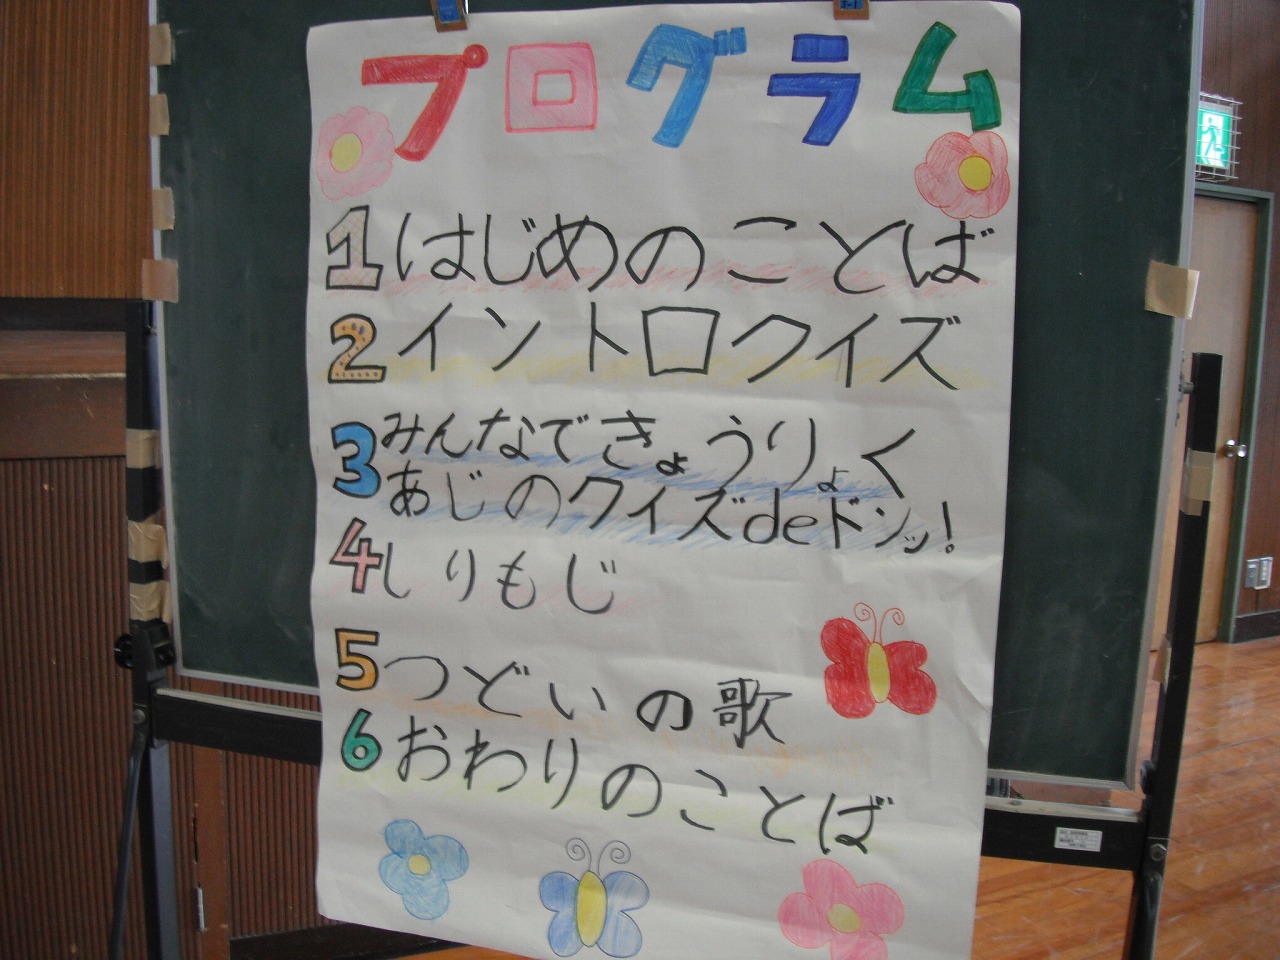 プログラム
1 はじめのことば
2 イントロクイズ
3 みんなできょうりょく
あじのクイズdeドンッ!
4 しりもじ
5 つどいの歌
6 おわりのことば